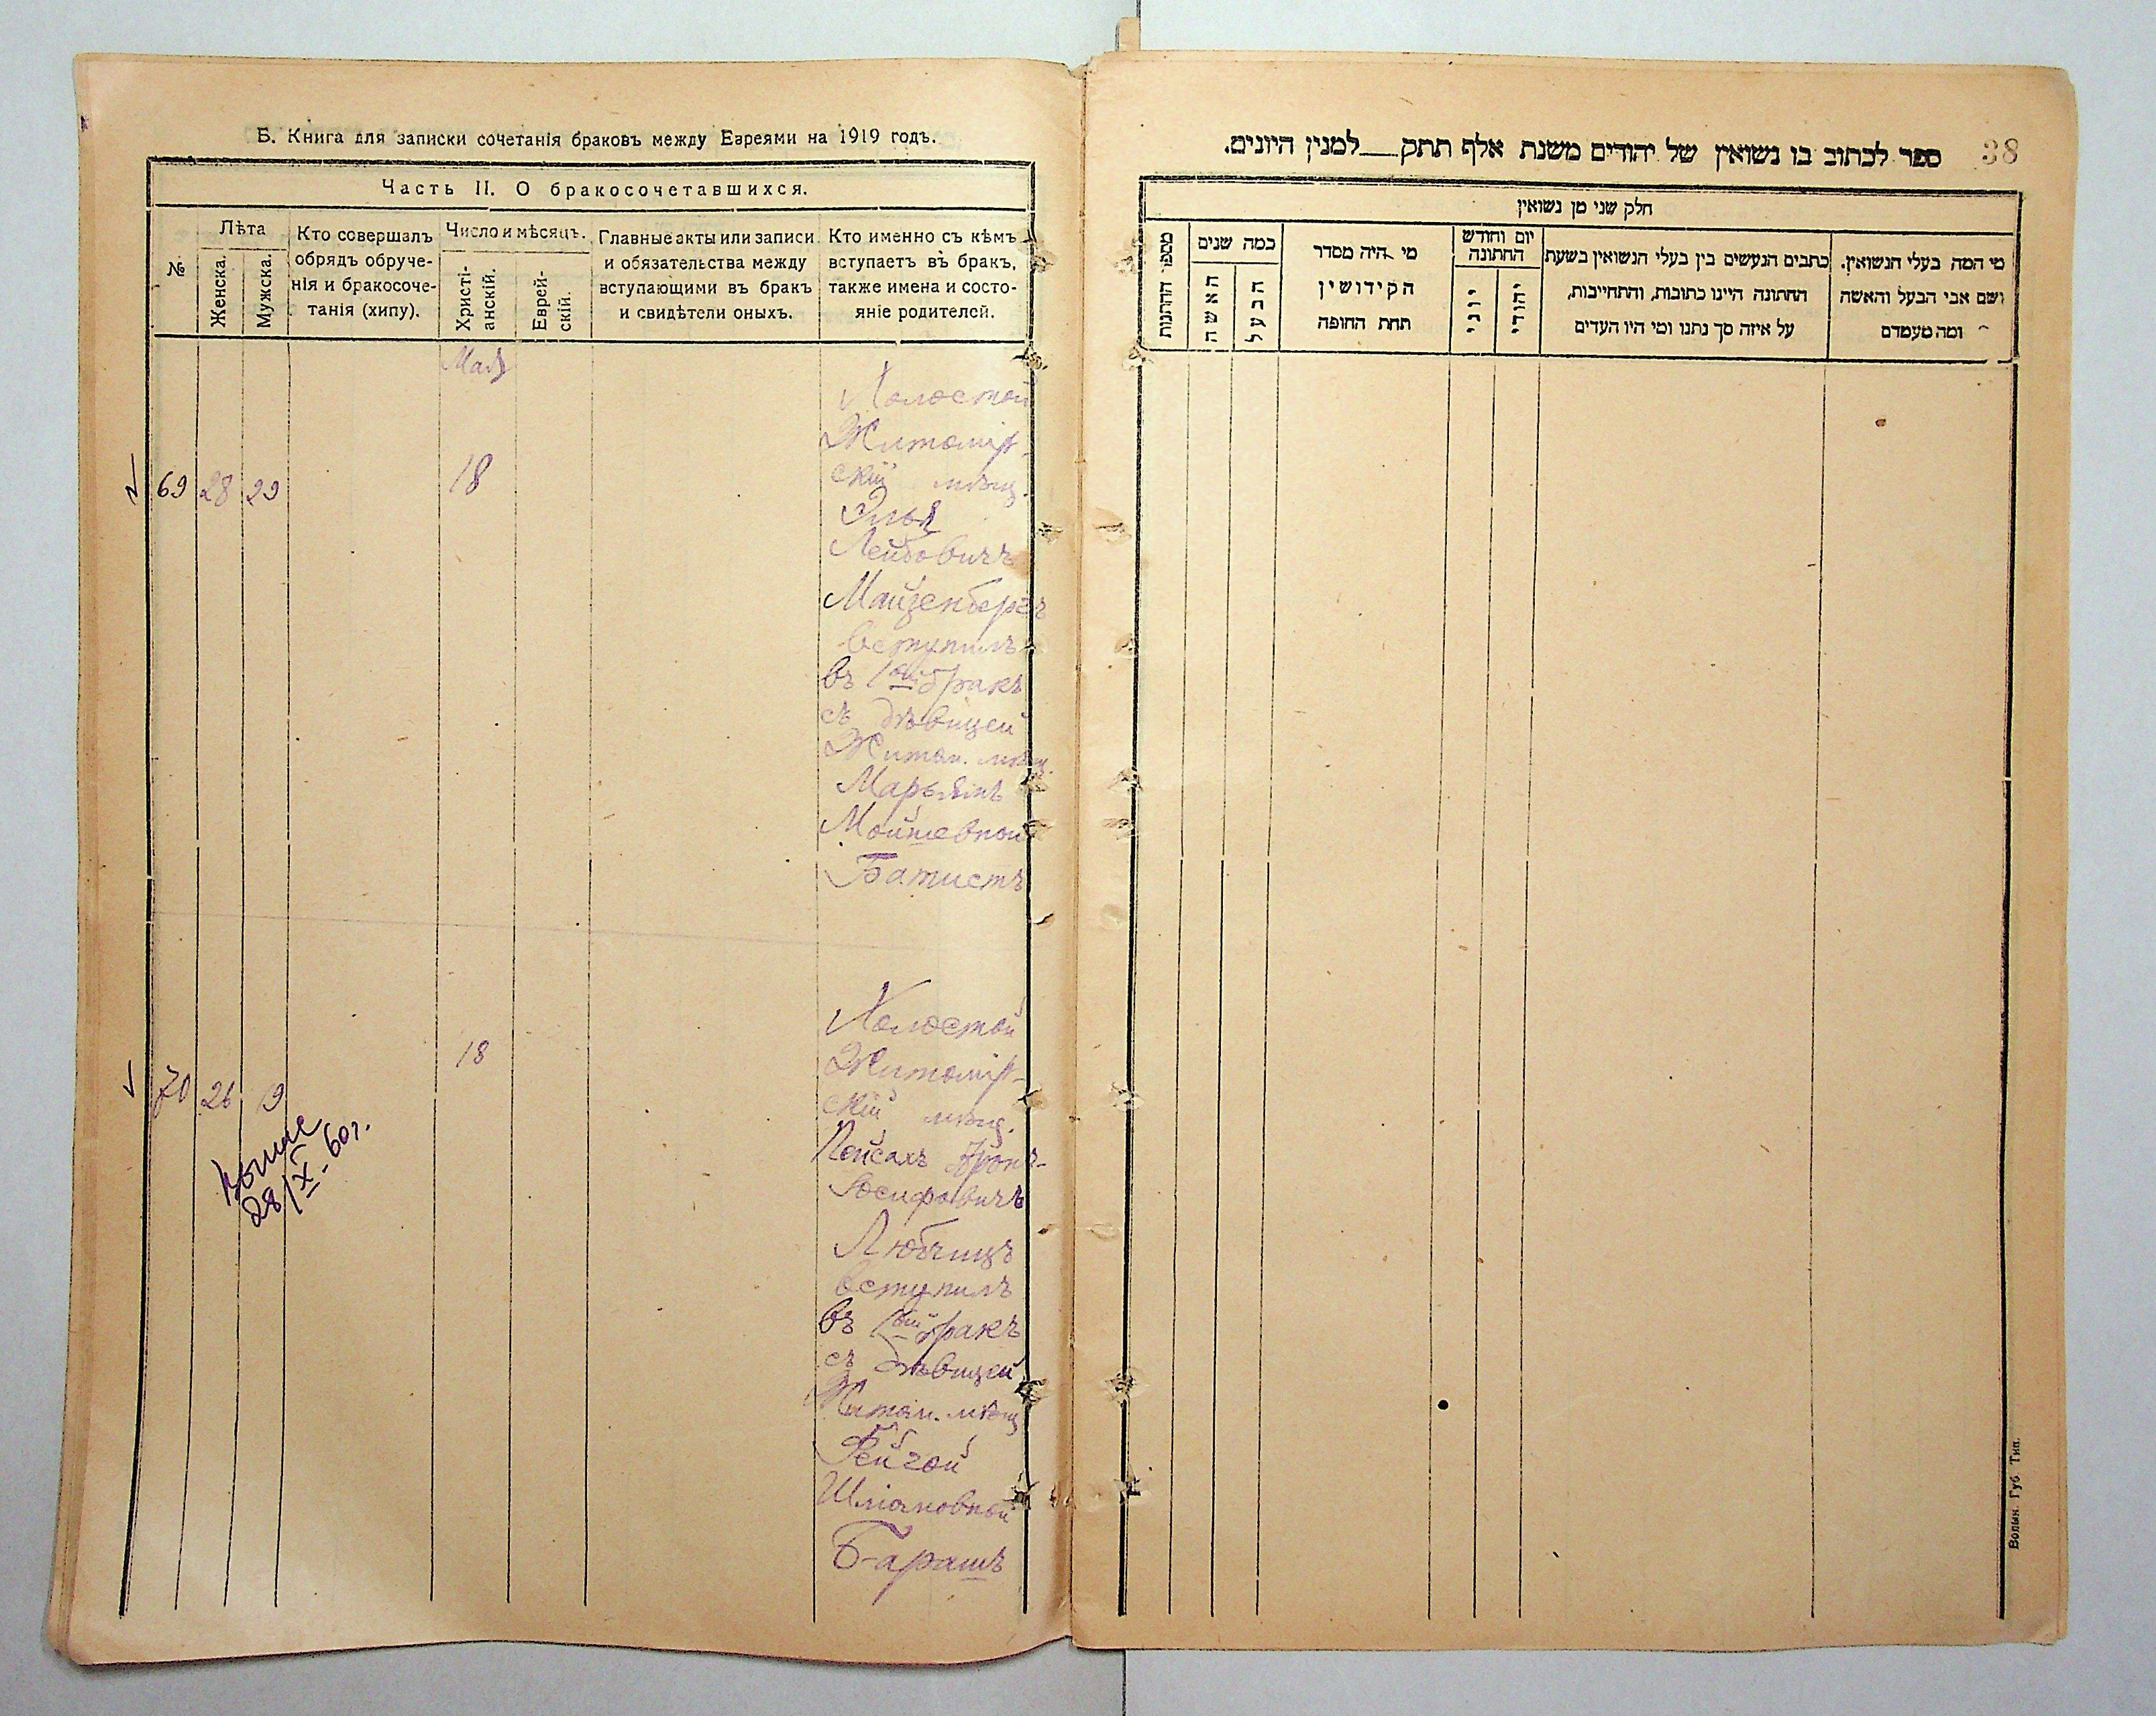 Б. Книга для записки сочетанія браковъ между Евреями на 1919 годъ.
Часть II. О бракосочетавшихся.
№
Лѣта
Женска.
Мужска.
Кто совершалъ
обрядъ обруче-
нія и бракосоче-
танія (хипу).
Число и мѣсяцъ.
Христі-
анскій.
Еврей-
скій.
Главные акты или записи
и обязательства между
вступающими въ бракъ
и свидѣтели оныхъ.
Кто именно съ кѣмъ
вступаетъ въ бракъ,
также имена и состо-
яніе родителей.
Май
69 28 29 18
Холостой
Житомір-
скій мѣщ.
Эль
Лейбовичъ
Майзенбергъ
вступилъ
въ 1ый бракъ
съ дѣвицей
Житом. мѣщ.
Марьямъ
Мойшевной
Батистъ
70 26 19 18
Холостой
Житомір-
скій мѣщ.
Пейсахъ
Іосифовичъ
Любчицъ
вступилъ
въ 1ый бракъ
съ дѣвицей
Житом. мѣщ
Фейгой
Шліомовной
Барашъ
28/IX-60г.
38
ספר לכתוב בו נשואין של יהודים משנת אלף תתק___למנין היונים.
חלק שני מן נשואין
מספר החתונות
כמה שנים
האשה
הבעל
מי היה מסדר
הקידושין
תחת החופה
יום וחודש
החתונה
יוני
יהודי
כתבים הנעשים בין בעלי הנשואין בשעת
החתונה היינו כתובות, והתחייבות,
על איזה סך נתנו ומי היו העדים
מי המה בעלי הנשואין.
ושם אבי הבעל והאשה
ומה מעמדם
Волын. Губ. Тип.